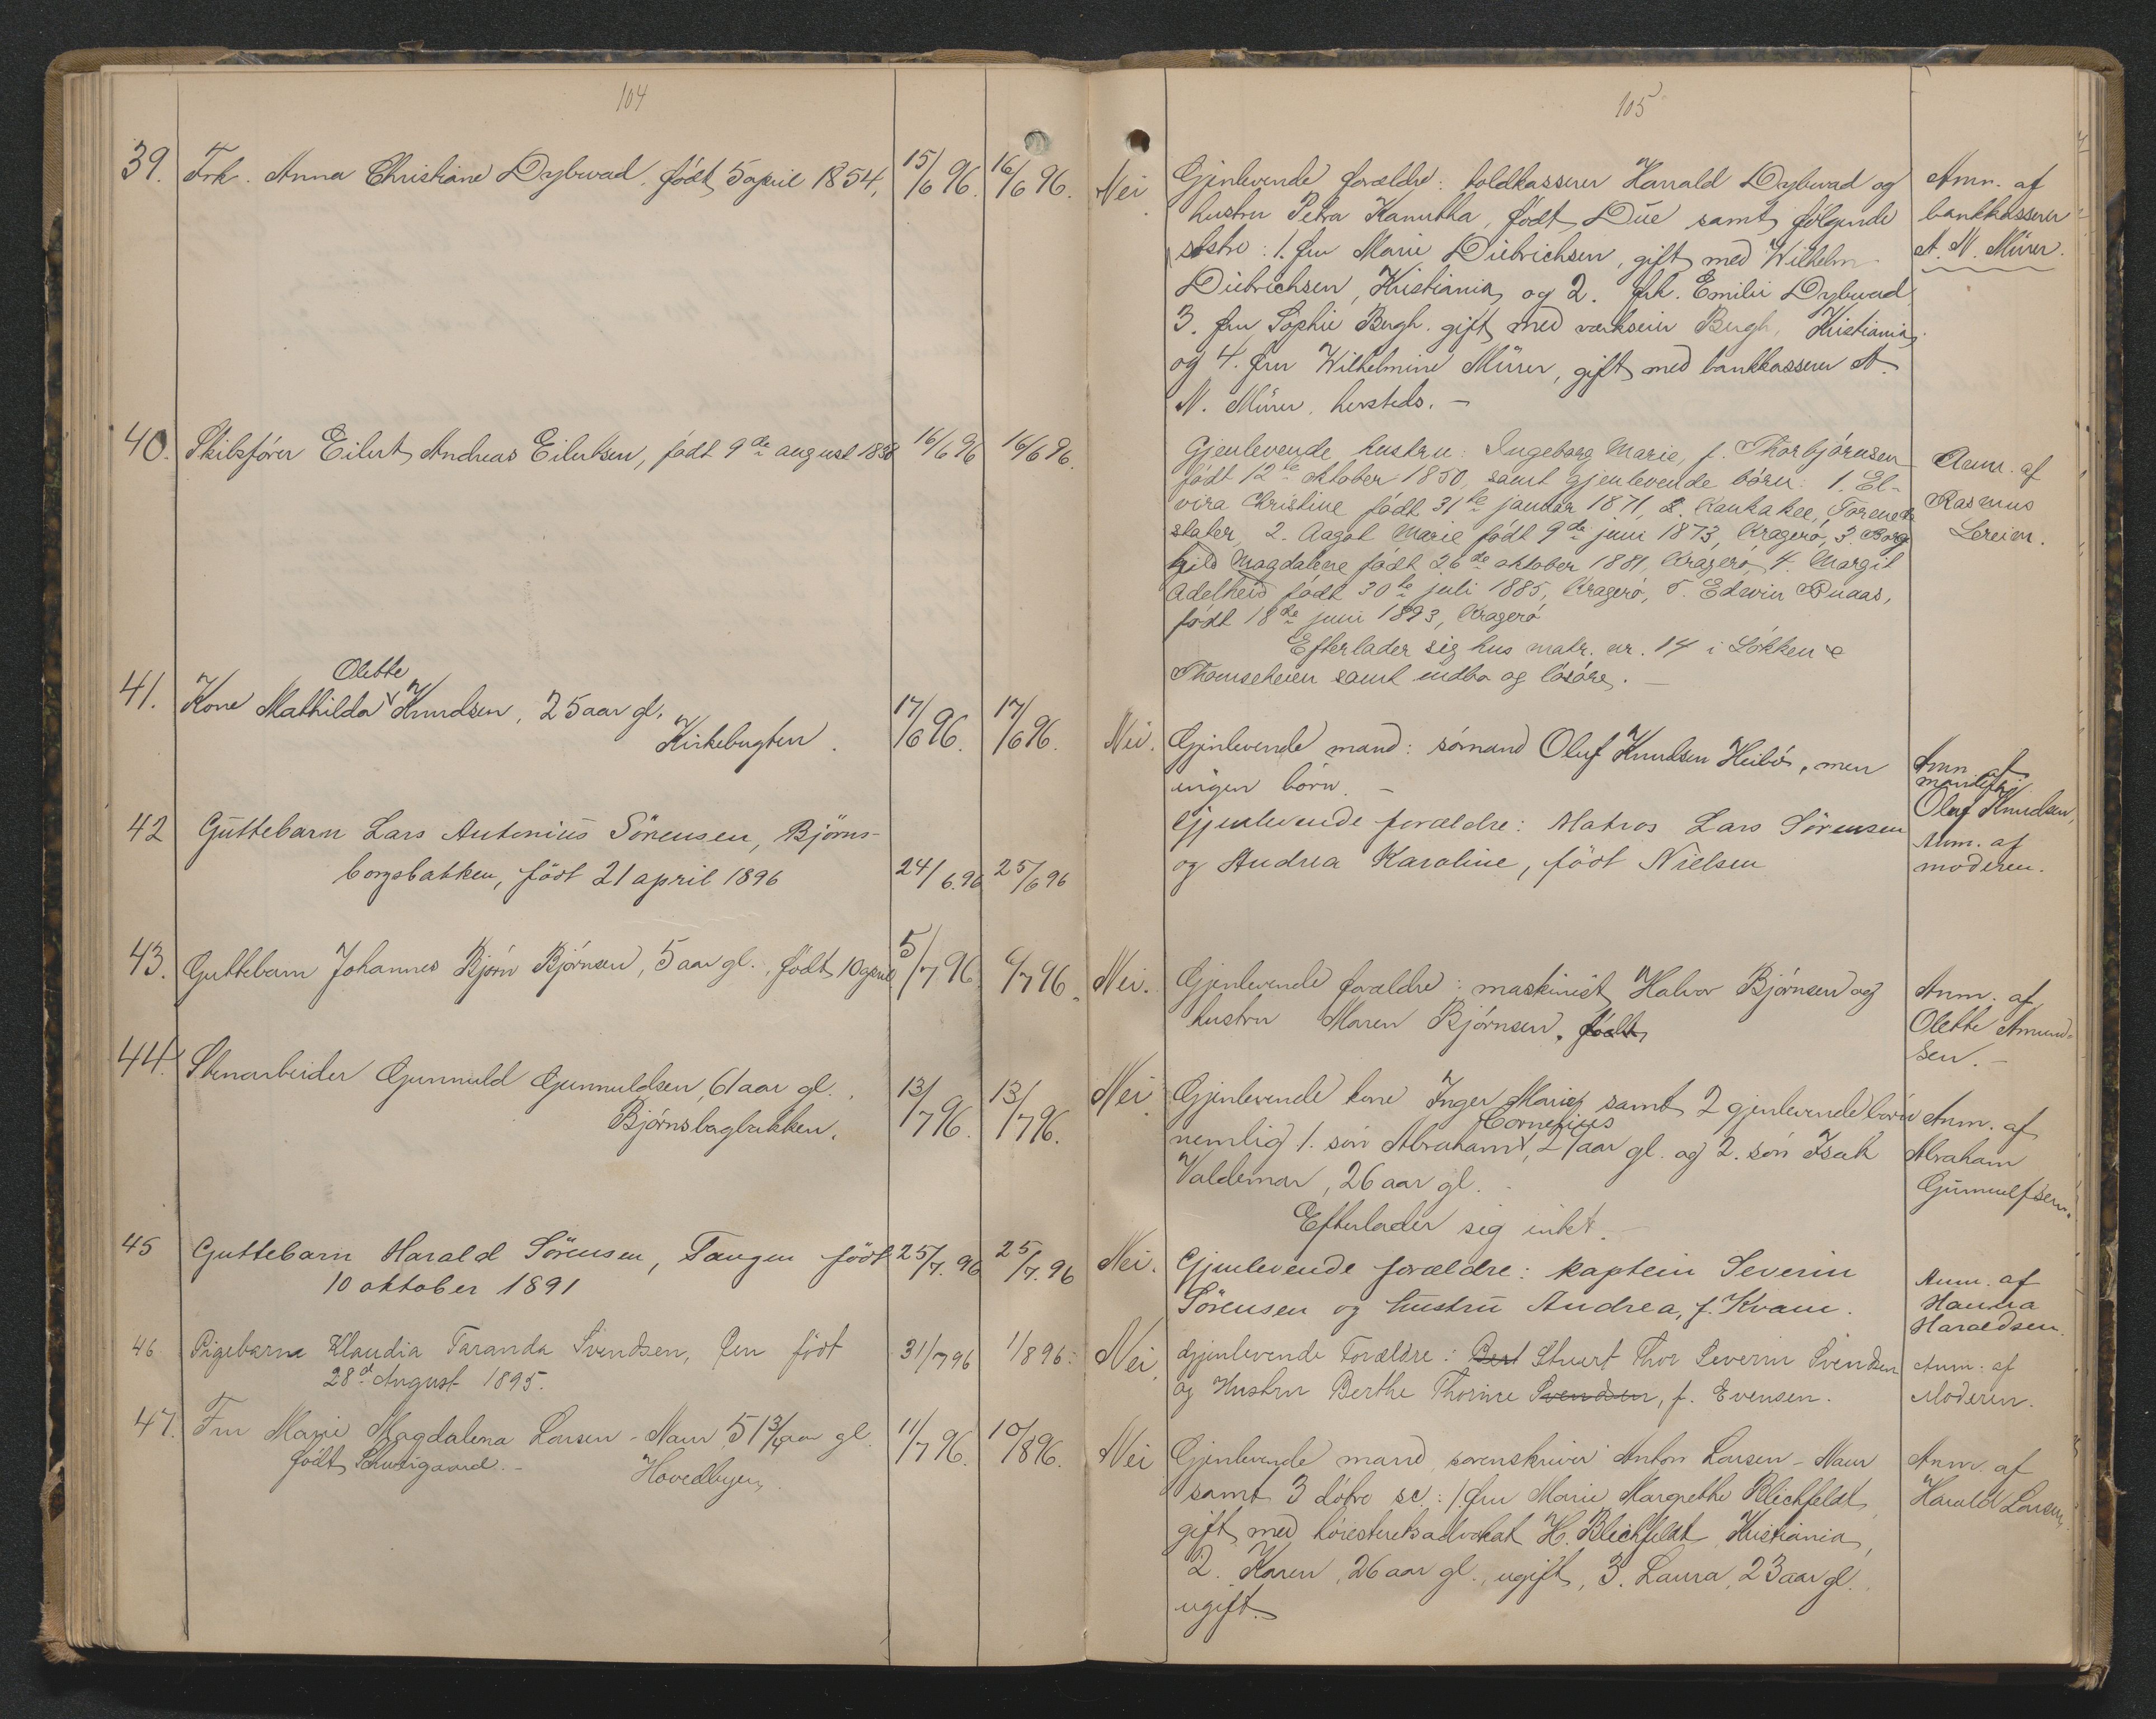 104
39. Frk. Anna Christiane Dybwad, født 5 april 1854, 15/6 96. 16/6 96.
40. Skibsfører Eilert Andreas Eilertsen, født 9de august 1838 16/6 96 16/6 96.
Olette
41. Kone Mathilda Knudsen, 25 aar gl. 17/6 96. 17/6 96.
Kirkebugten.
42 Guttebarn Lars Antonius Sörensen, Björns-
borgsbakken, född 21 april 1896 24/6.96 25/6 96
43. Guttebarn Johannes Bjørn Bjørnsen, 5 aar gl., født 10 april 5/7 96 6/7 96.
44. Stenarbeider Gunnuld Gunnuldsen, 61 aar gl. 13/7 96. 13/7 96.
Bjørnsbogbakken.
45 Guttebarn Harald Sörensen, Tangen født 25/7.96 25/7.96
10 oktober 1891
46 Pigebarn Klaudia Taranda Svendsen, Øen født 31/7 96 1/8 96.
28d August 1895.
47. Fru Marie Magdalena Larsen-Naur 51 3/4 aar gl. 11/7 96. 10/8 96.
født Schweigaard.- Hovedbyen
105
Nei Gjenlevende forældre: toldkasserer Harald Dybwad og
hustru Petra Kanutha, født Düe samt følgende
søstre: 1. fru Marie Dietrichsen, gift med Wilhelm
Dietrichsen, Kristiania og 2. frk. Emilie Dybwad
3. fru Sophie Bergh. gift med værkseier Bergh, Kristiania,
og 4. fru Wilhelmine Mürer, gift med bankkasserer A.
N. Mürer, hersteds. -
Anm. af
bankkasserer
A. N. Mürer.
Gjenlevende hustru: Ingeborg Marie, f. Thorbjørnsen
født 12te oktober 1850, samt gjenlevende børn: 1. El-
vira Christine født 31te januar 1871, Kankakee, Forenede
stater, 2. Aagot Marie født 9de juni 1873, Kragerø, 3. Borg
hild Magdalene født 26de oktober 1881, Kragerø, 4. Margit
Adelheid født 30te juli 1885, Kragerø, 5. Edwin
født 18de juni 1893, Kragerø
Efterlader sig hus matr. nr. 14 i Løkken &
Thomseheien samt indbo og løsøre. -
Anm. af
Rasmus
Lereim.
Nei. Gjenlevende mand: sømand Oluf Knudsen Heibø, men
ingen børn. -
Anm. af
manden
Oluf Knudsen,
Gjenlevende forældre: Matros Lars Sörensen
og Andrea Karoline, född Nielsen
Anm. af
moderen.
Nei. Gjenlevende forældre: maskinist Halvor Bjørnsen og
hustru Maren Bjørnsen, født
Anm. af
Olette Amund-
sen. -
Nei. Gjenlevende kone Inger Marie, samt 2 gjenlevende børn
Cornelius
nemlig 1. søn Abraham, 21 aar gl. og 2. søn Isak
Valdemar, 26 aar gl.
Efterlader sig intet. -
Anm. af
Abraham
Gunnulfsen.
Nei. Gjenlevende forældre: kaptein Severin
Sörensen og hustru Andrea, f. Kvam.
Anm. af
Hanna
Haraldsen.
Nei. Gjenlevende Forældre: Best Stuert Thor Severin Svendsen
og Hustru Berthe Thorine Svendsen, f. Evensen.
Anm. af
Moderen.
Nei Gjenlevende mand sorenskriver Anton Larsen-Naur
samt 3 døtre sc.: 1. fru Marie Margrethe Blichfeldt,
gift med høiesteretsadvokat H. Blichfeldt Kristiania,
2. Karen, 26 aar gl., ugift, 3. Laura, 23 aar gl.
ugift.
Anm. af
Harald Larsen.